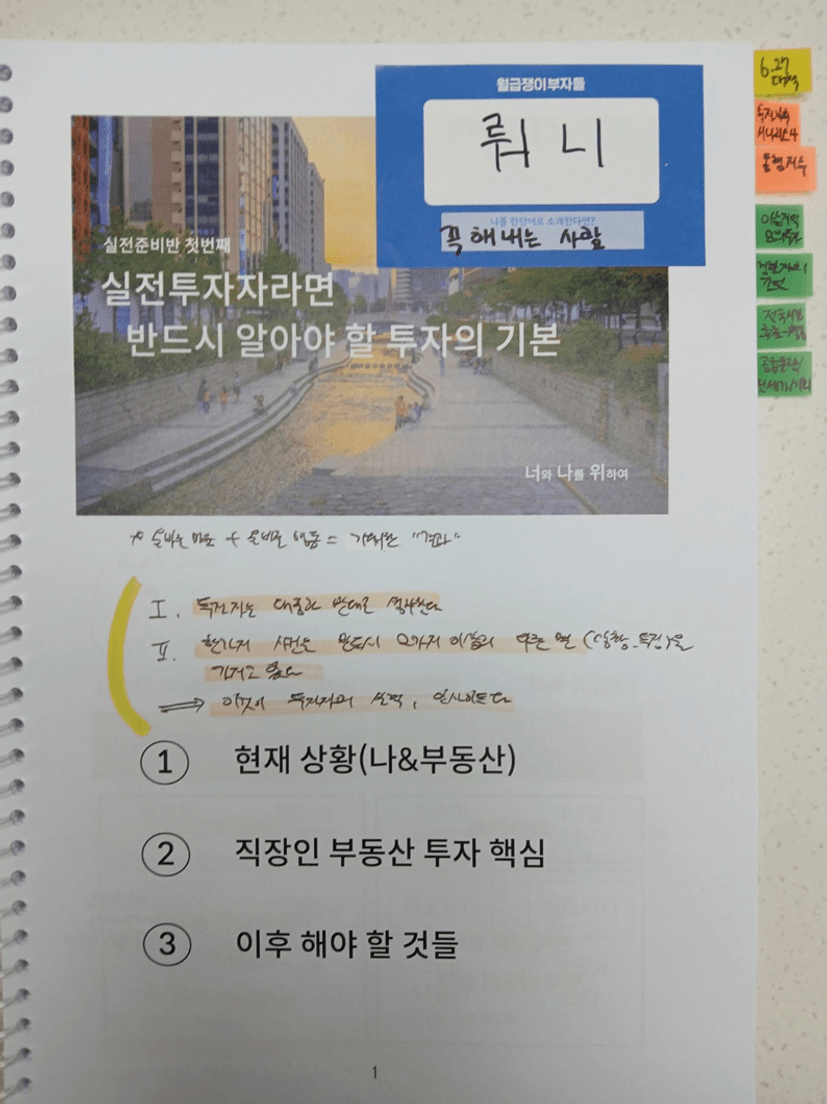 월급쟁이부자들
뤄니
나를 한단어로 소개한다면?
꼭 해내는 사람
실전준비반 첫번째
실전투자자라면
반드시 알아야 할 투자의 기본
너와 나를 위하여
6.27
대책
투자지속
시나리오4
* 올바른 마음 + 올바른 행동 = 거대한 "결과"
I. 투자자는 대중과 반대로 생각한다
II. 한가지 사건은 반드시 2가지 이상의 다른 면 (상황_특징)을
가지고 있다
⇒ 이것이 투자자의 실력, 인사이트다
① 현재 상황(나&부동산)
② 직장인 부동산 투자 핵심
③ 이후 해야 할 것들
1